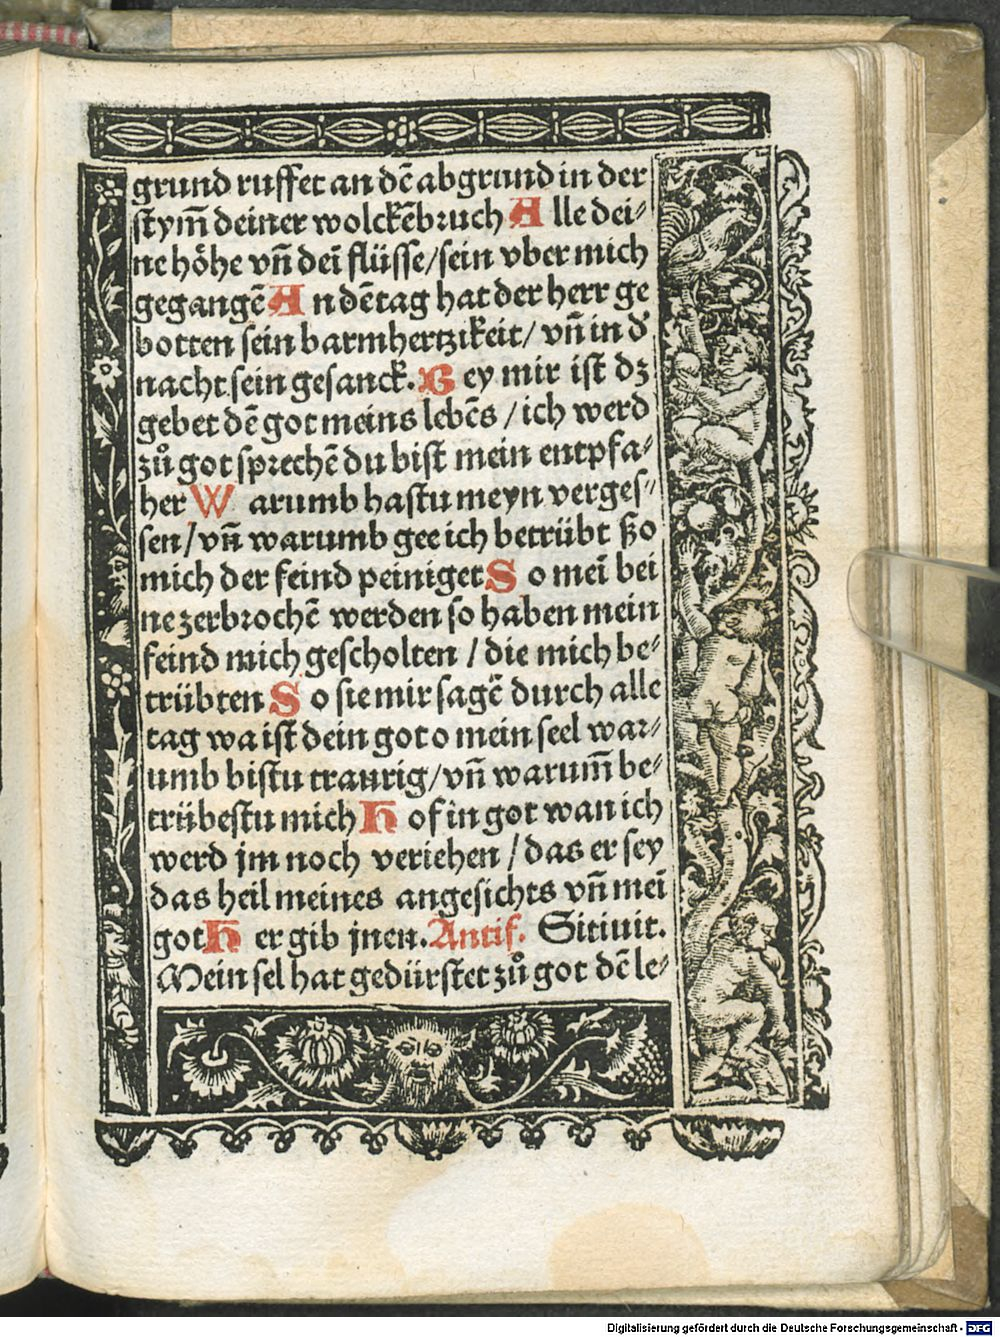 grund ruffet an dē abgrund in der
stym̄ deiner wolckēbruch A lle dei⸗
ne höhe vn̄ deī flüsse/sein vber mich
gegangē A n dē tag hat der herr ge
botten sein barmhertzikeit/ vn̄ in d̕
nacht sein gesanck. B ey mir ist dz
gebet dē got meins lebēs /ich werd
zů got sprechē du bist mein entpfa⸗
her W arumb hastu meyn verges⸗
sen/vn̄ warumb gee ich betrübt ßo
mich der feind peiniget S o meī bei
ne zerbrochē werden so haben mein
feind mich gescholten / die mich be⸗
trübten S o sie mir sagē durch alle
tag wa ist dein got o mein seel war⸗
umb bistu traurig/vn̄ warum̄ be⸗
trübestu mich H of in got wan ich
werd jm noch veriehen / das er sey
das heil meines angesichts vn̄ meī
got H er gib jnen. Antif. Sitiuit.
Mein sel hat gedürstet zů got dē le⸗
Digitalisierung gefördert durch die Deutsche Forschungsgemeinschaft - DFG